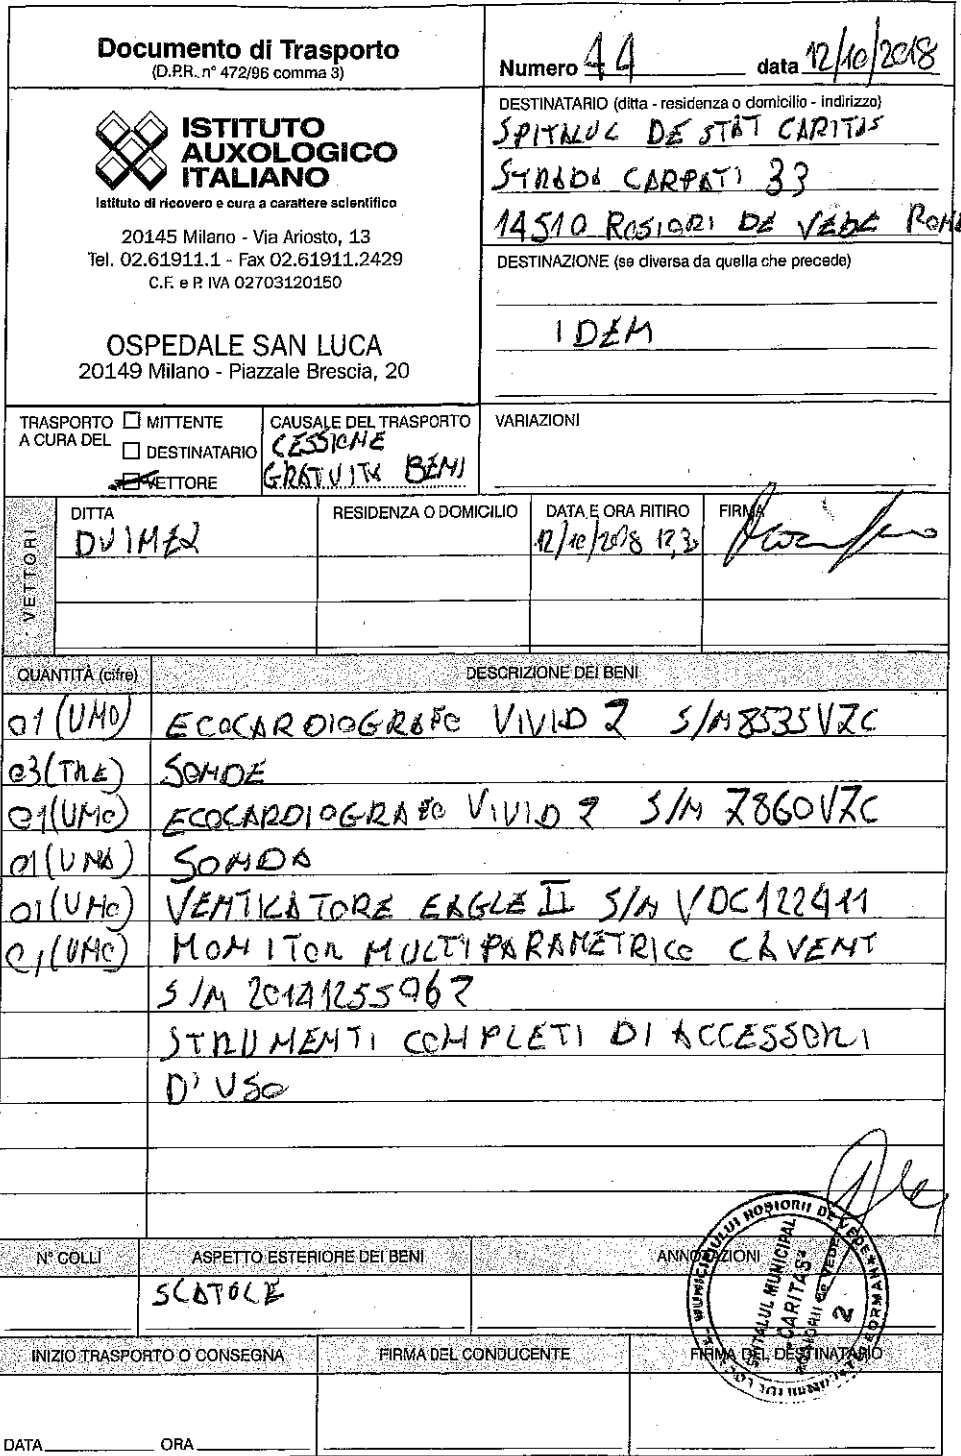 Documento di Trasporto
(D.P.R. n° 472/96 comma 3)
ISTITUTO
AUXOLOGICO
ITALIANO
Istituto di ricovero e cura a carattere scientifico
20145 Milano - Via Ariosto, 13
Tel. 02.61911.1 - Fax 02.61911.2429
C.F. e P. IVA 02703120150
OSPEDALE SAN LUCA
20149 Milano - Piazzale Brescia, 20
Numero 44 data 12/10/2018
DESTINATARIO (ditta - residenza o domicilio - indirizzo)
SPITALUL DE STAT CARITAS
STRADA CARPATI 33
14510 ROSIORI DE VEDE
DESTINAZIONE (se diversa da quella che precede)
IDEM
TRASPORTO A CURA DEL
MITTENTE
DESTINATARIO
VETTORE
CAUSALE DEL TRASPORTO
CESSIONE
GRATUITA BENI
VARIAZIONI
VETTORI
DITTA RESIDENZA O DOMICILIO DATA E ORA RITIRO FIRMA
12/10/2018
QUANTITÀ (cifre) DESCRIZIONE DEI BENI
01 (UNO) ECOCARDIOGRAFO VIVID 7 S/N 8535VZC
03 (TRE) SONDE
01 (UNO) ECOCARDIOGRAFO VIVID 7 S/N 7860VZC
01 (UNA) SONDA
01 (UNO) VENTILATORE EAGLE II S/N
01 (UNO) MONITOR MULTIPARAMETRICO CAVENT
S/N 20141255967
STRUMENTI COMPLETI DI ACCESSORI
D'USO
N° COLLI ASPETTO ESTERIORE DEI BENI ANNOTAZIONI
SCATOLE
SPITALUL MUNICIPAL
"CARITAS"
ROSIORII DE VEDE
2
INIZIO TRASPORTO O CONSEGNA FIRMA DEL CONDUCENTE FIRMA DEL DESTINATARIO
DATA ORA